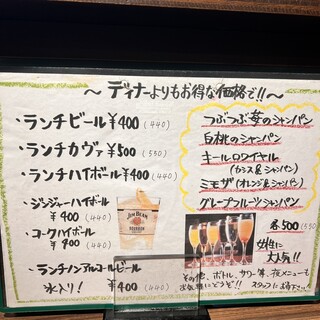 ～ディナーよりもお得な価格で!!～
・ランチビール ¥400 (440)
・ランチカヴァ ¥500 (550)
・ランチハイボール ¥400 (440)
・ジンジャーハイボール
¥400 (440)
・コークハイボール
¥400 (440)
・ランチノンアルコールビール
氷入り! ¥400 (440)
JIM BEAM
BOURBON
つぶつぶ苺のシャンパン
白桃のシャンパン
キールロワイヤル
(カシス&シャンパン)
ミモザ(オレンジ&シャンパン)
グレープフルーツシャンパン
各500 (550)
女性に
大人気!!
その他、ボトル、サワー等、夜メニューも
お気軽にどうぞ!! スタッフにお声下さい!